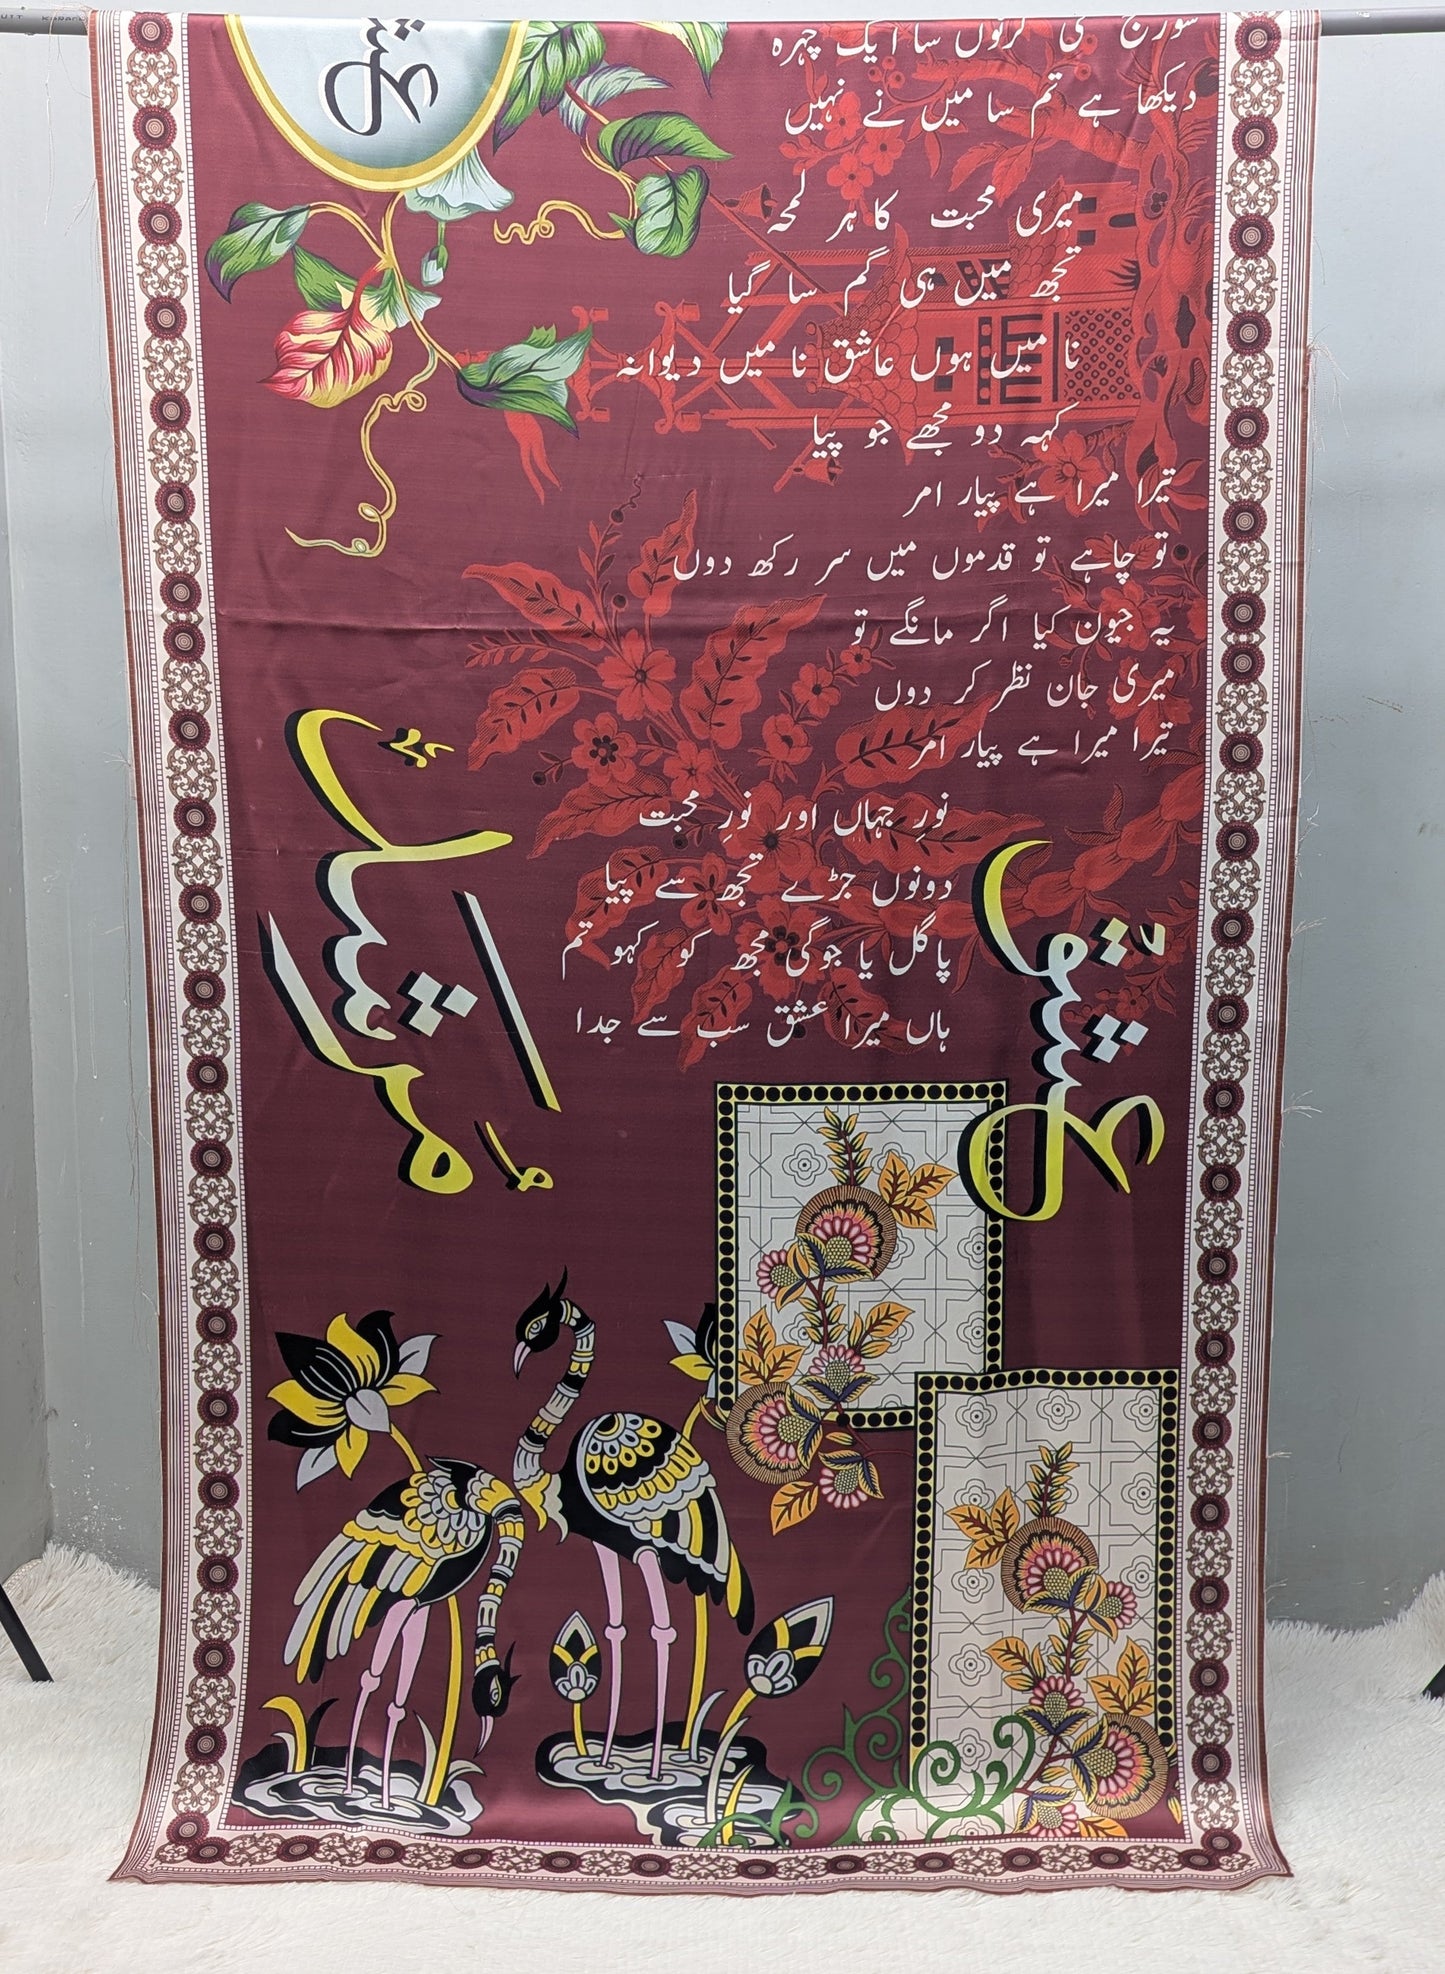 سورج کی کرنوں سا ایک چہرہ
دیکھا ہے تم سا میں نے نہیں
میری محبت کا ہر لمحہ
تجھ میں ہی گم سا گیا
نا میں ہوں عاشق نا میں دیوانہ
کہہ دو مجھے جو پیا
تیرا میرا ہے پیار امر
تو چاہے تو قدموں میں سر رکھ دوں
یہ جیون کیا اگر مانگے تو
میری جان نظر کر دوں
تیرا میرا ہے پیار امر
نورِ جہاں اور نورِ محبت
دونوں جڑے تجھ سے پیا
پاگل یا جوگی مجھ کو کہو تم
ہاں میرا عشق سب سے جدا
عشق